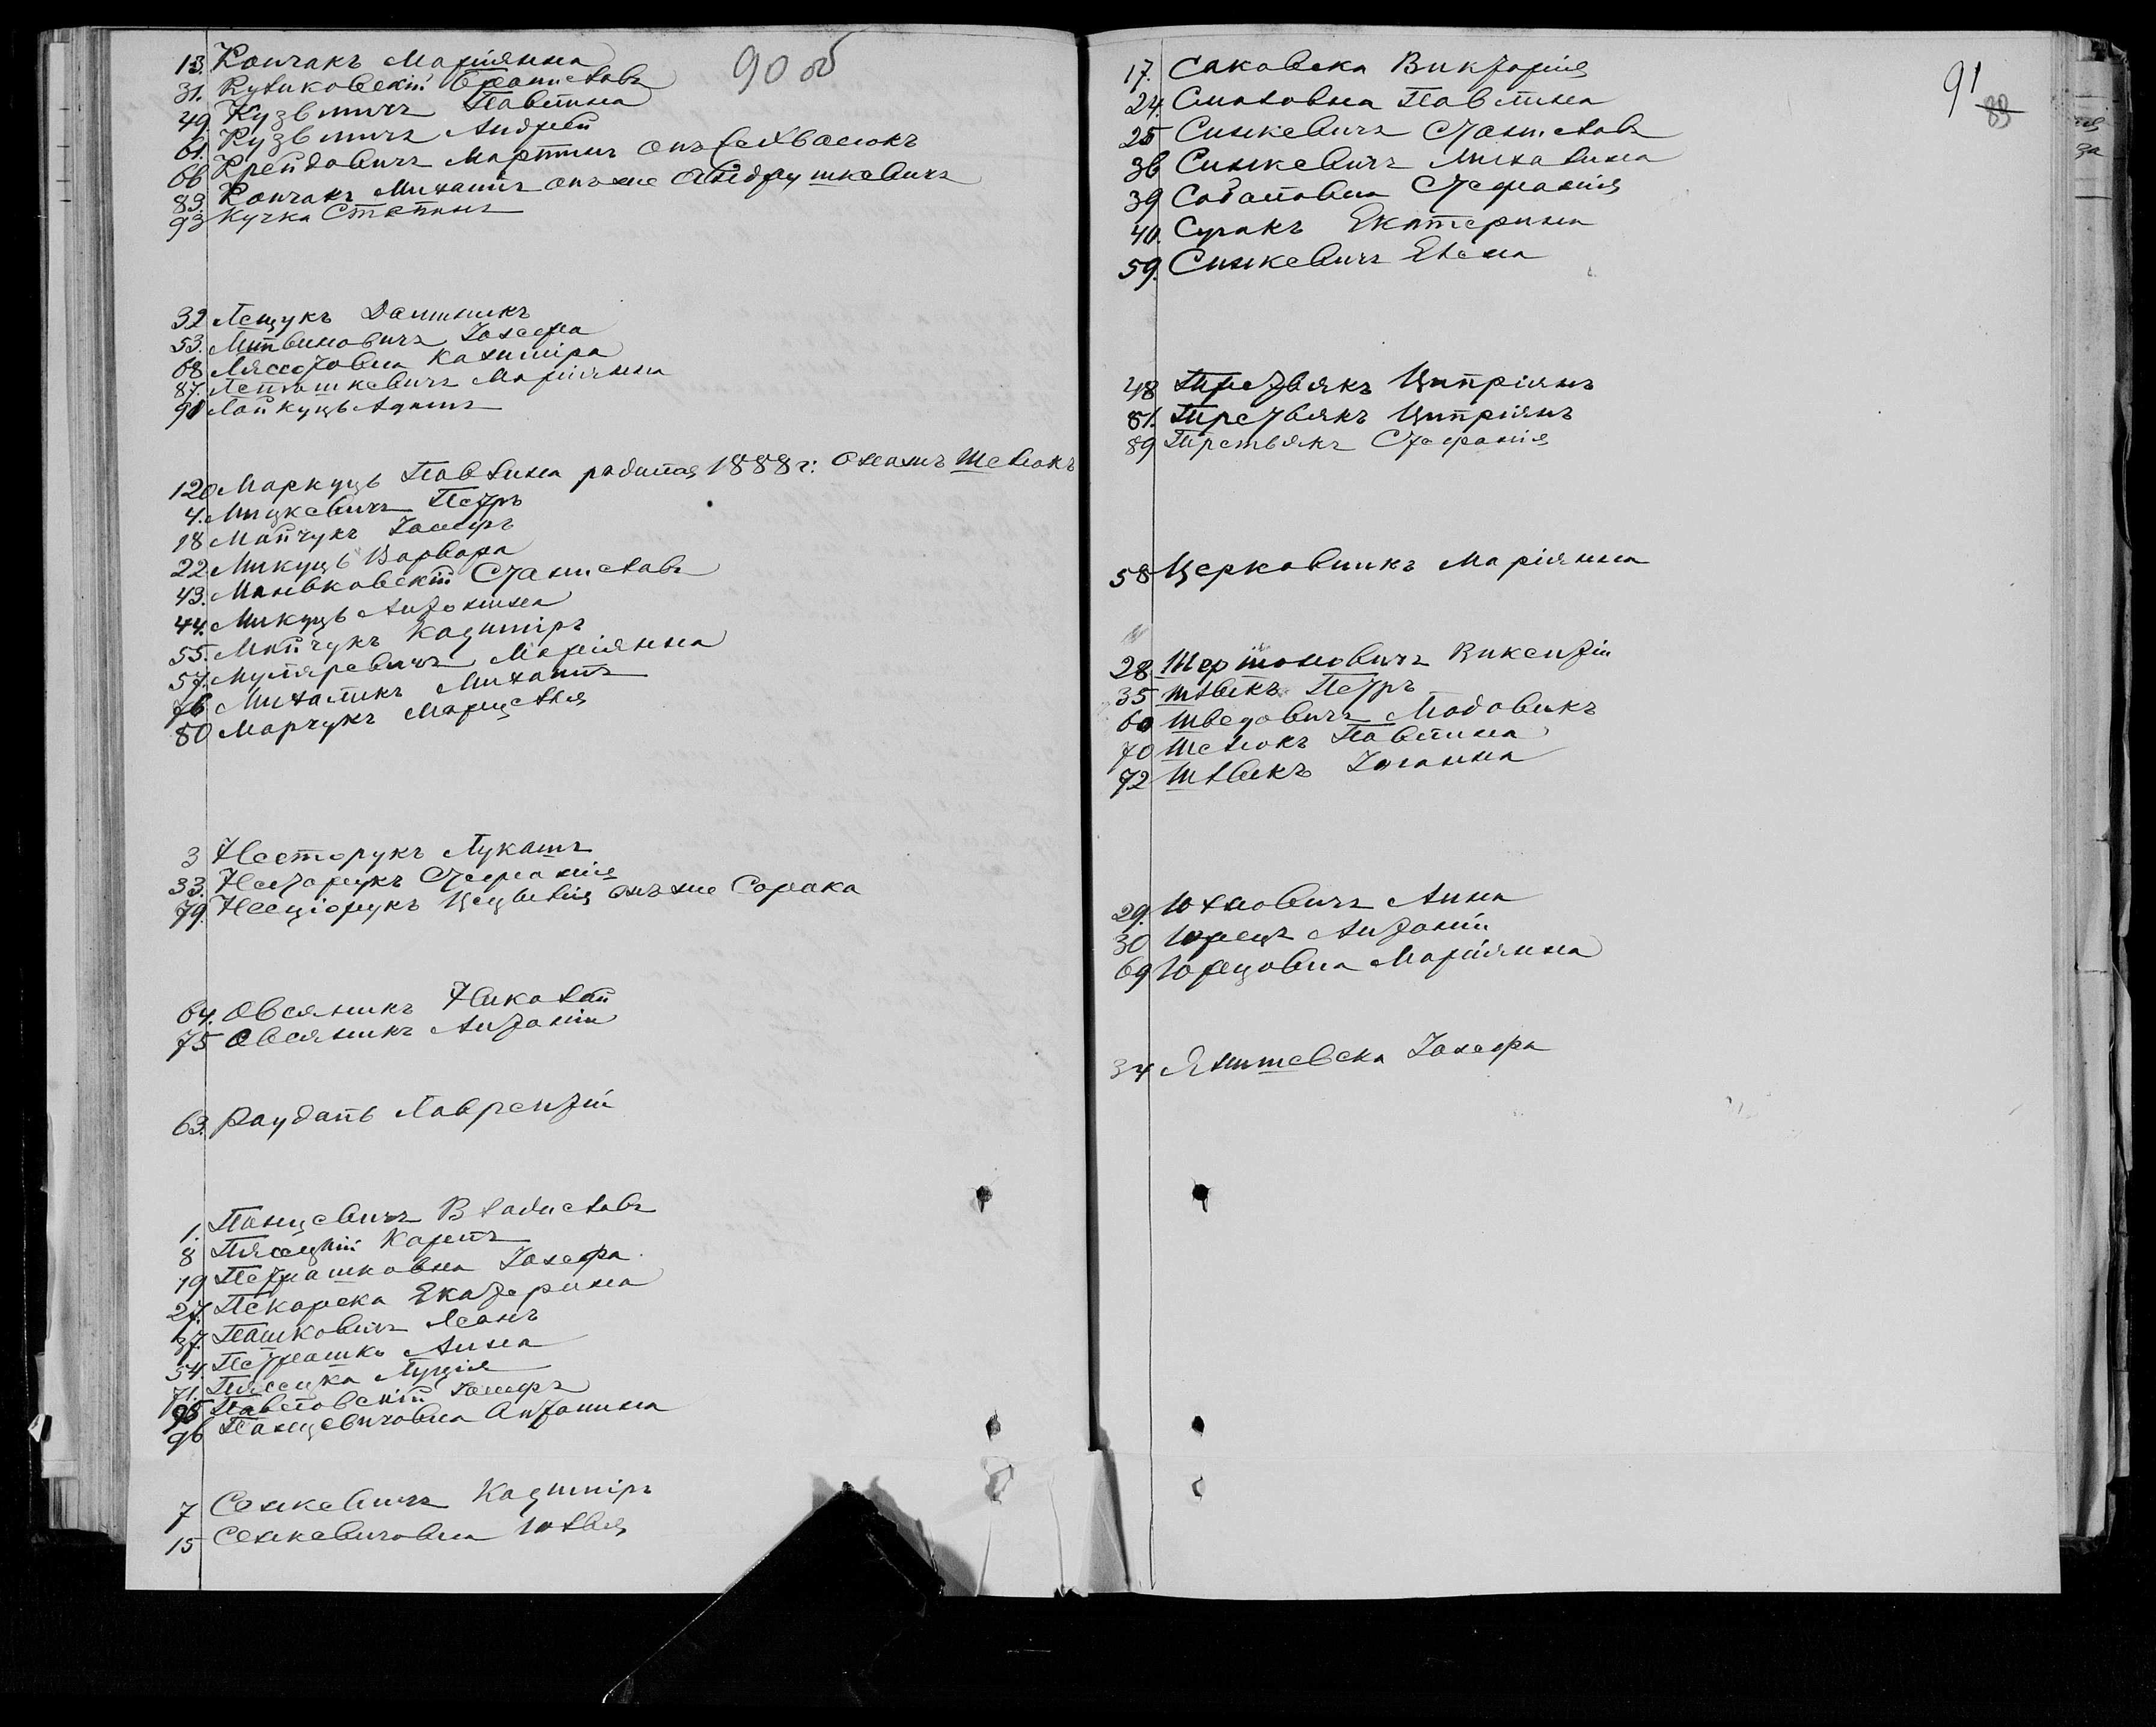 90 об
13. Кончакъ Маріянна
31. Куликовскій Брониславъ
49. Кузьмичъ Павлина
61. Кузьмичъ Андрей
66. Крейдовичъ Мартинъ онъ же Хвасюкъ
83. Кончакъ Михаилъ онъ же Андрушкевичъ
93 Кучка Степанъ
32 Лещукъ Доминикъ
53. Литвиновичъ Іозефа
68 Лясотовна Казиміра
87. Лепешкевичъ Маріянна
91 Лойкуць Адамъ
120 Маркуць Павлина родилась 1888 г:
4. Мицкевичъ Петръ
18 Мойчукъ Іосифъ
22. Микуць Варвара
43. Маньковскій Станиславъ
44. Микуць Антонина
55. Мойчукъ Казиміръ
57. Муляревичъ Маріянна
76 Михаликъ Михаилъ
80 Марчукъ Марцелля
3 Несторукъ Лукашъ
33. Нестарукъ Стефанія
79. Несціорукъ Цецилія онъ же Сорока
64. Овсяникъ Николай
75 Овсяникъ Антоній
63. Раудапь Лаврентій
1. Панцевичъ Владиславъ
8 Пясецкій Кароль
19 Петрашковна Іозефа
27. Пекарска Екатерина
37. Пашковичъ Леонъ
54. Петрашко Анна
71. Пясецка Луція
95 Павловскій Іосифъ
96 Панцевичовна Антонина
7 Сенкевичъ Казиміръ
15 Сенкевичовна Юлія
91
89
17. Саковска Викторія
24. Смоловна Павлина
25 Синкевичъ Станиславъ
36 Синкевичъ Михалина
39 Соболовна Стефанія
40. Сучакъ Екатерина
59. Синкевичъ Елена
48 Третьякъ Ципріянъ
81. Третьякъ Ципріянъ
89 Третьякъ Стефанія
58 Церковникъ Маріянна
28. Шертоновичъ Викентій
35 Шлыкъ Петръ
60 Шведовичъ Людовикъ
70 Шелюкъ Павлина
72 Шлыкъ Іоганна
29. Юхновичъ Анна
30 Юрецъ Антоній
69 Юрецовна Маріянна
34 Янишевска Іозефа